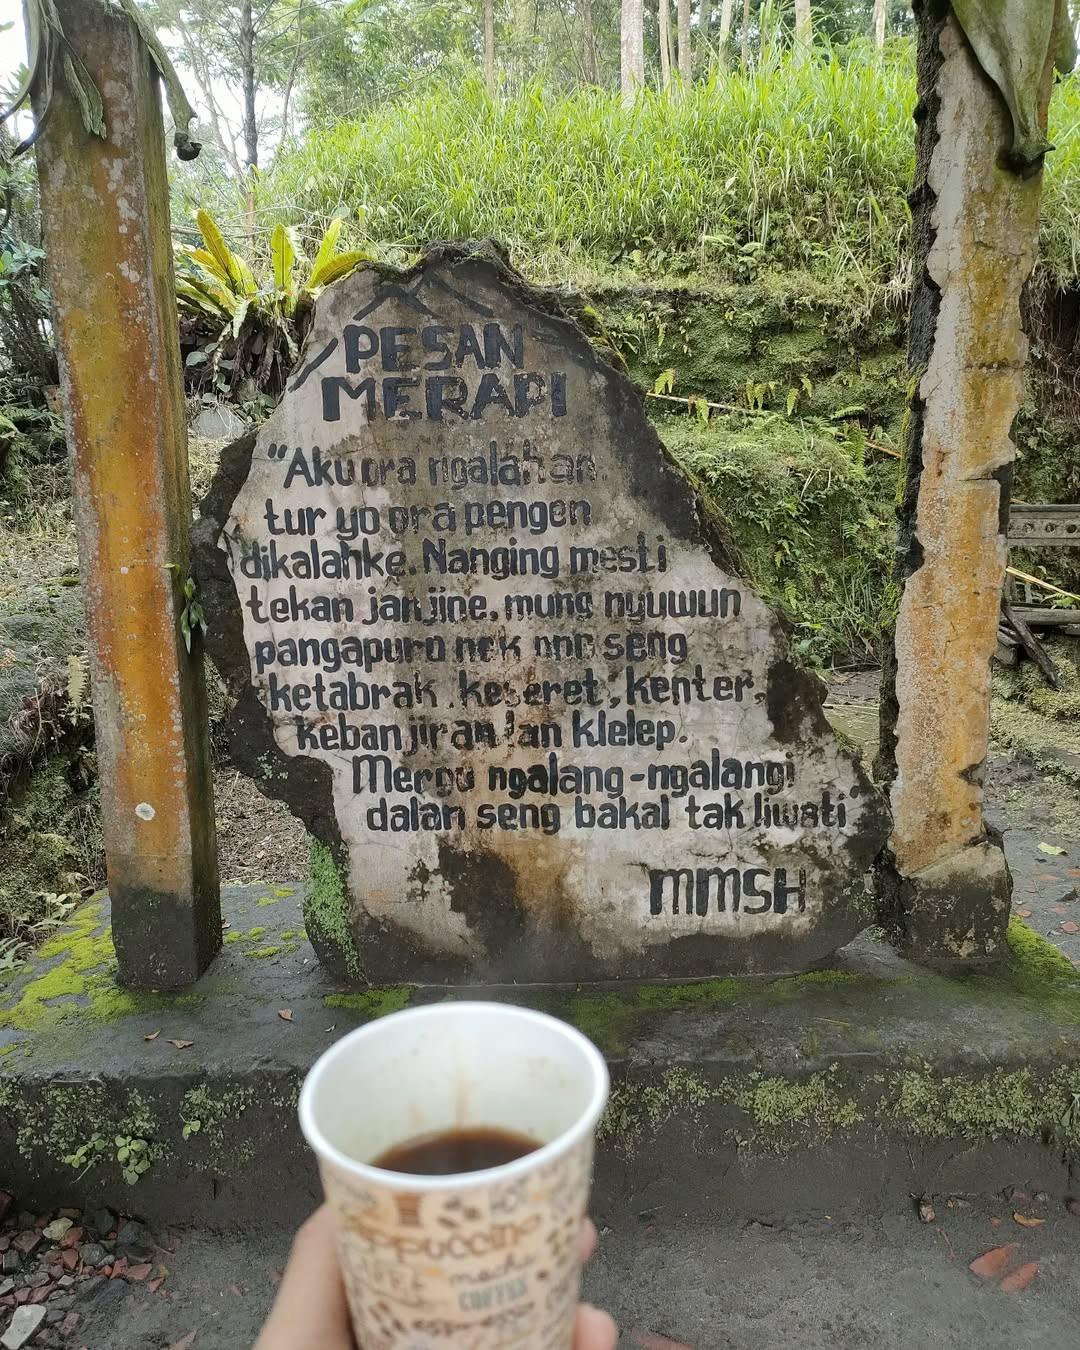 PESAN
MERAPI
"Aku ora ngalahan
tur yo ora pengen
dikalahke. Nanging mesti
tekan janjine, mung nyuwun
pangapuro nek ono seng
ketabrak, keseret, kenter,
kebanjiran lan klelep.
Mergo ngalang-ngalangi
dalan seng bakal tak liwati"
MMSH
cappuccino
mocha
COFFEE
espresso